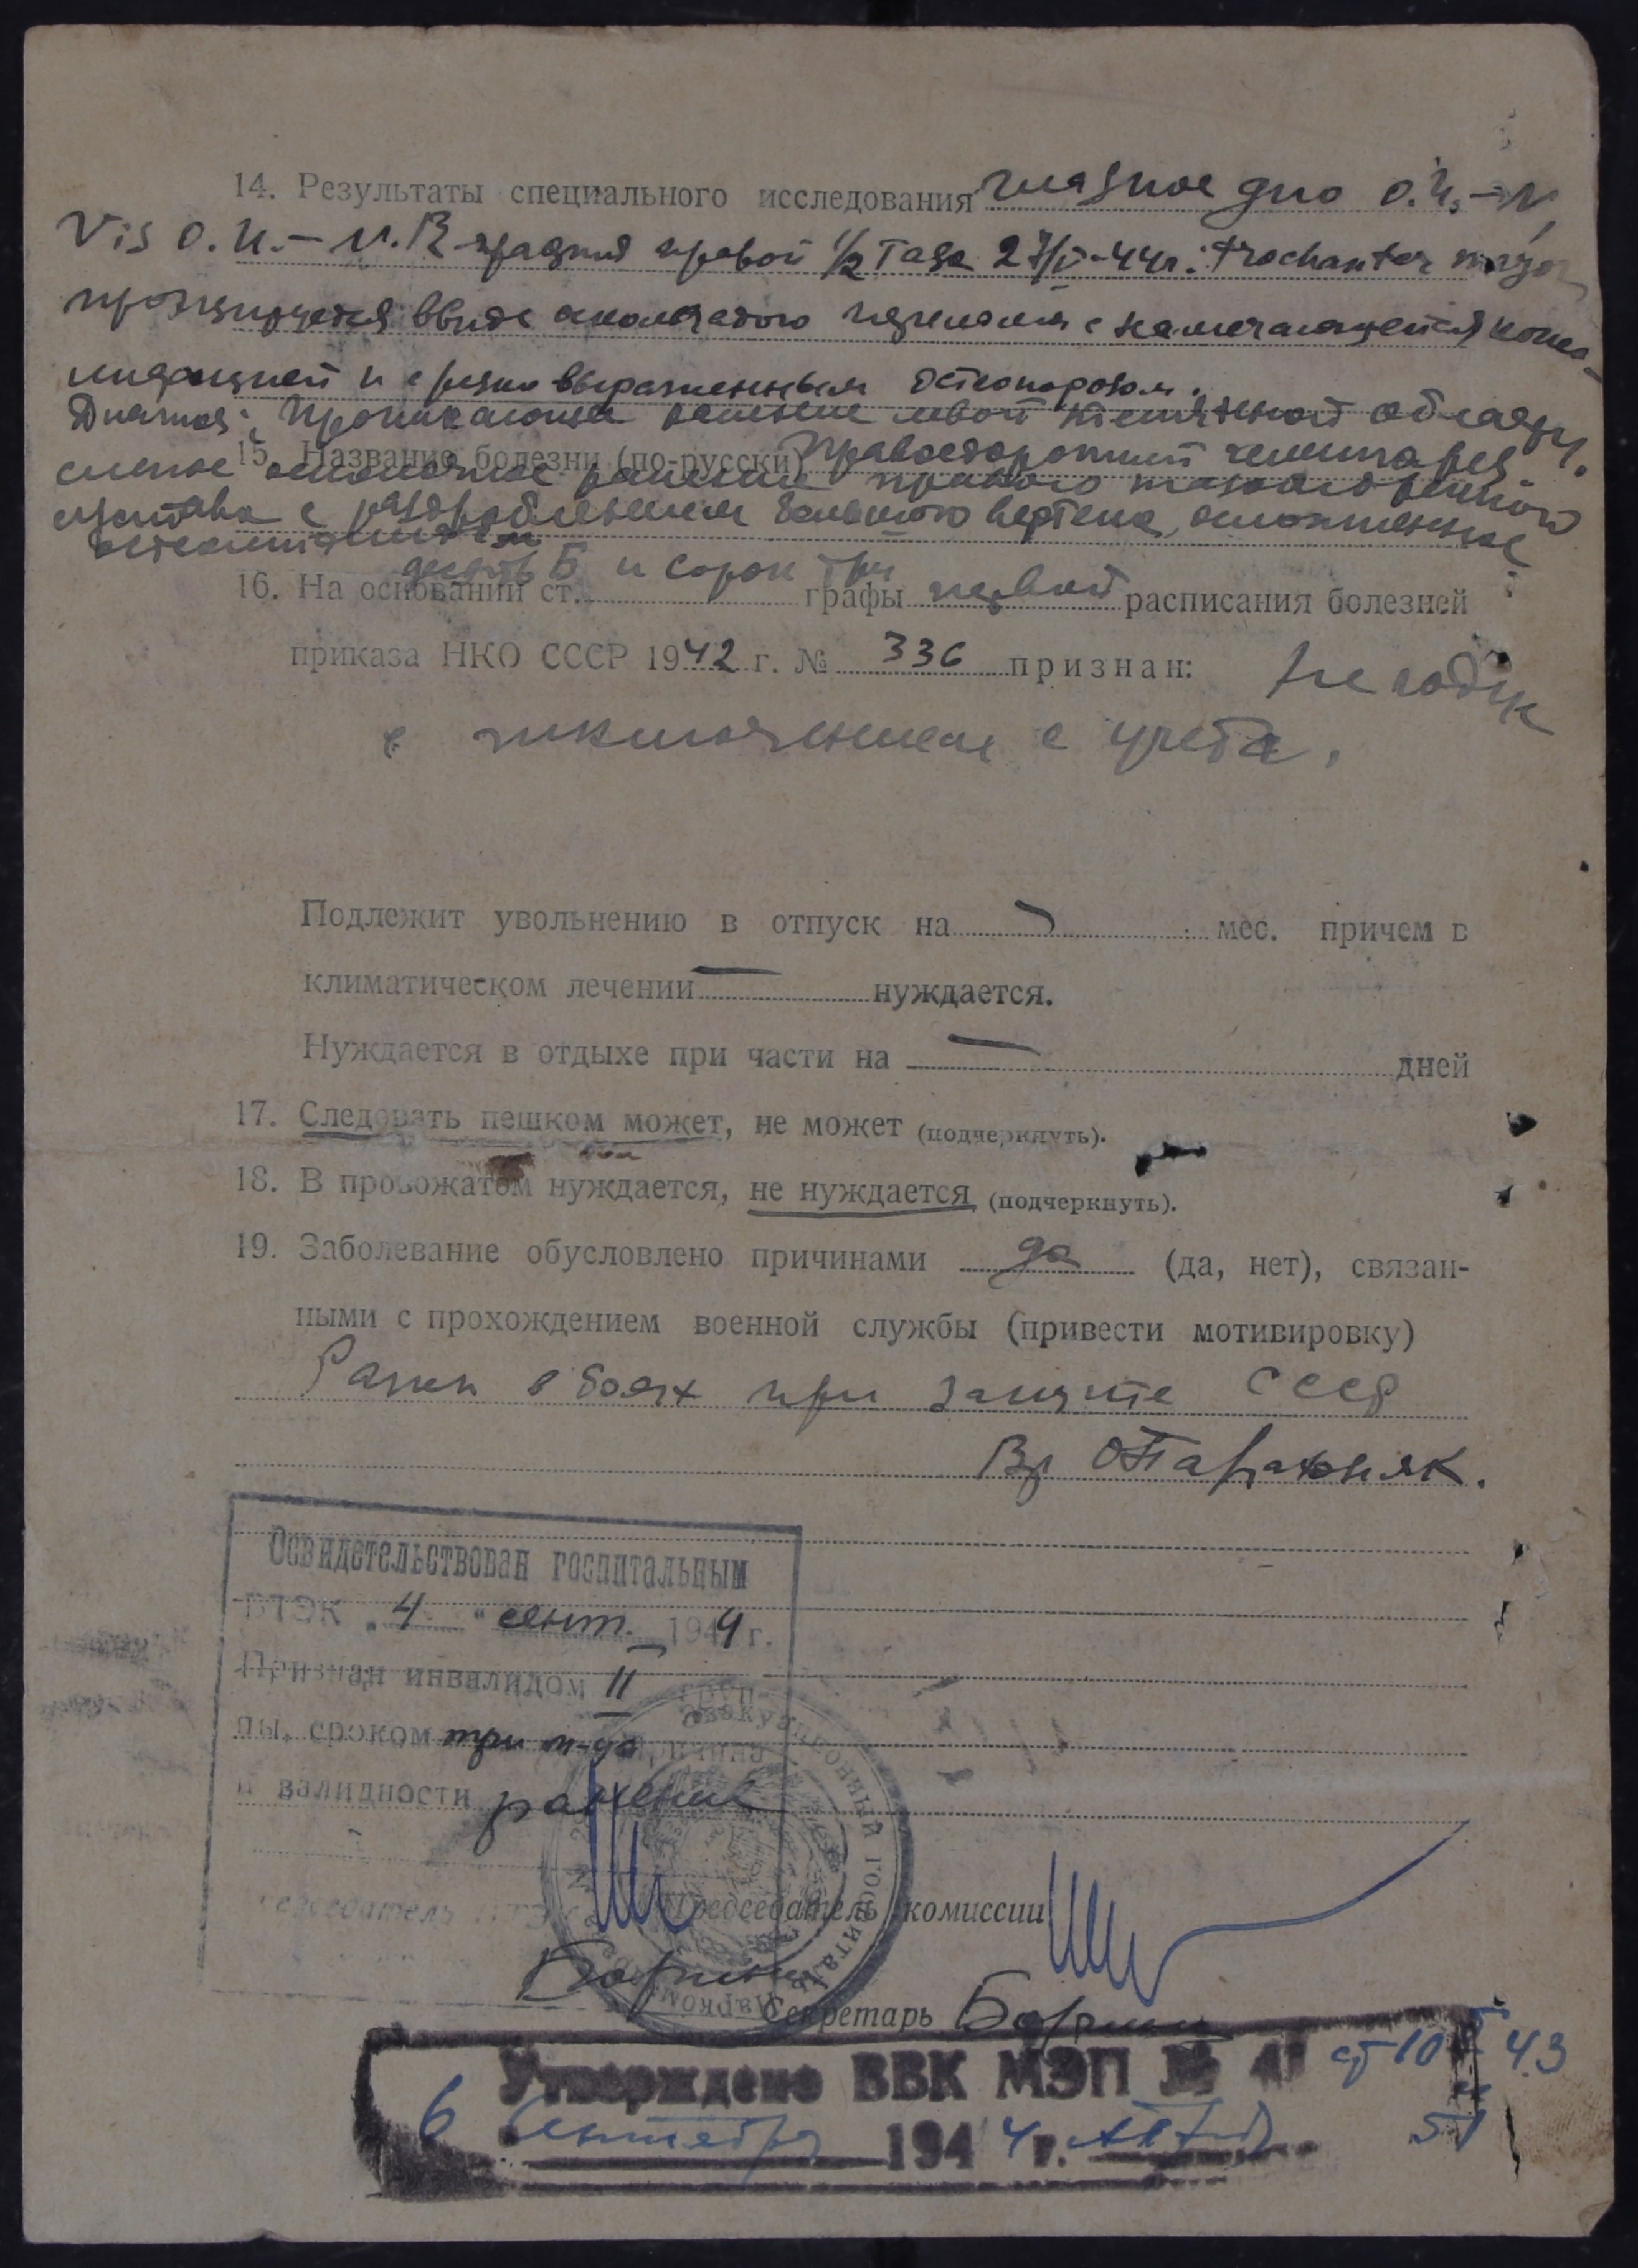 14. Результаты специального исследования глазное дно о.и. – N,
Vis о.и. – N. R-графия правой 1/2 таза 27/V-44г.: trochanter major
проэцируется ввиде оскольчатого перелома с намечающейся консо-
лидацией и с резко выраженным остеопорозом.
Диагноз: Проникающее ранение левой теменной области.
15. Название болезни (по-русски) Правосторонний гемипарез
слепое осколочное ранение правого тазобедренного
сустава с раздроблением большого вертела, осложненное
остеомиэлитом
десять Б и сорок три
16. На основании ст. графы первой расписания болезней
приказа НКО СССР 1942 г. № 336 признан: Не годен
с исключением с учета.
Подлежит увольнению в отпуск на мес. причем в
климатическом лечении — нуждается.
Нуждается в отдыхе при части на — дней
17. Следовать пешком может, не может (подчеркнуть).
18. В провожатом нуждается, не нуждается (подчеркнуть).
19. Заболевание обусловлено причинами да (да, нет), связан-
ными с прохождением военной службы (привести мотивировку)
Ранен в боях при защите СССР
Вр
Освидетельствован госпитальным
ВТЭК „4" сент. 1944 г.
Признан инвалидом II груп-
пы, сроком три м-ца причина
инвалидности ранение
Председатель ВТЭК
эвакуационный госпиталь
Председатель комиссии
Секретарь
Утверждено ВВК МЭП №
ст 10 Б 43
6 Сентября 1944 г.